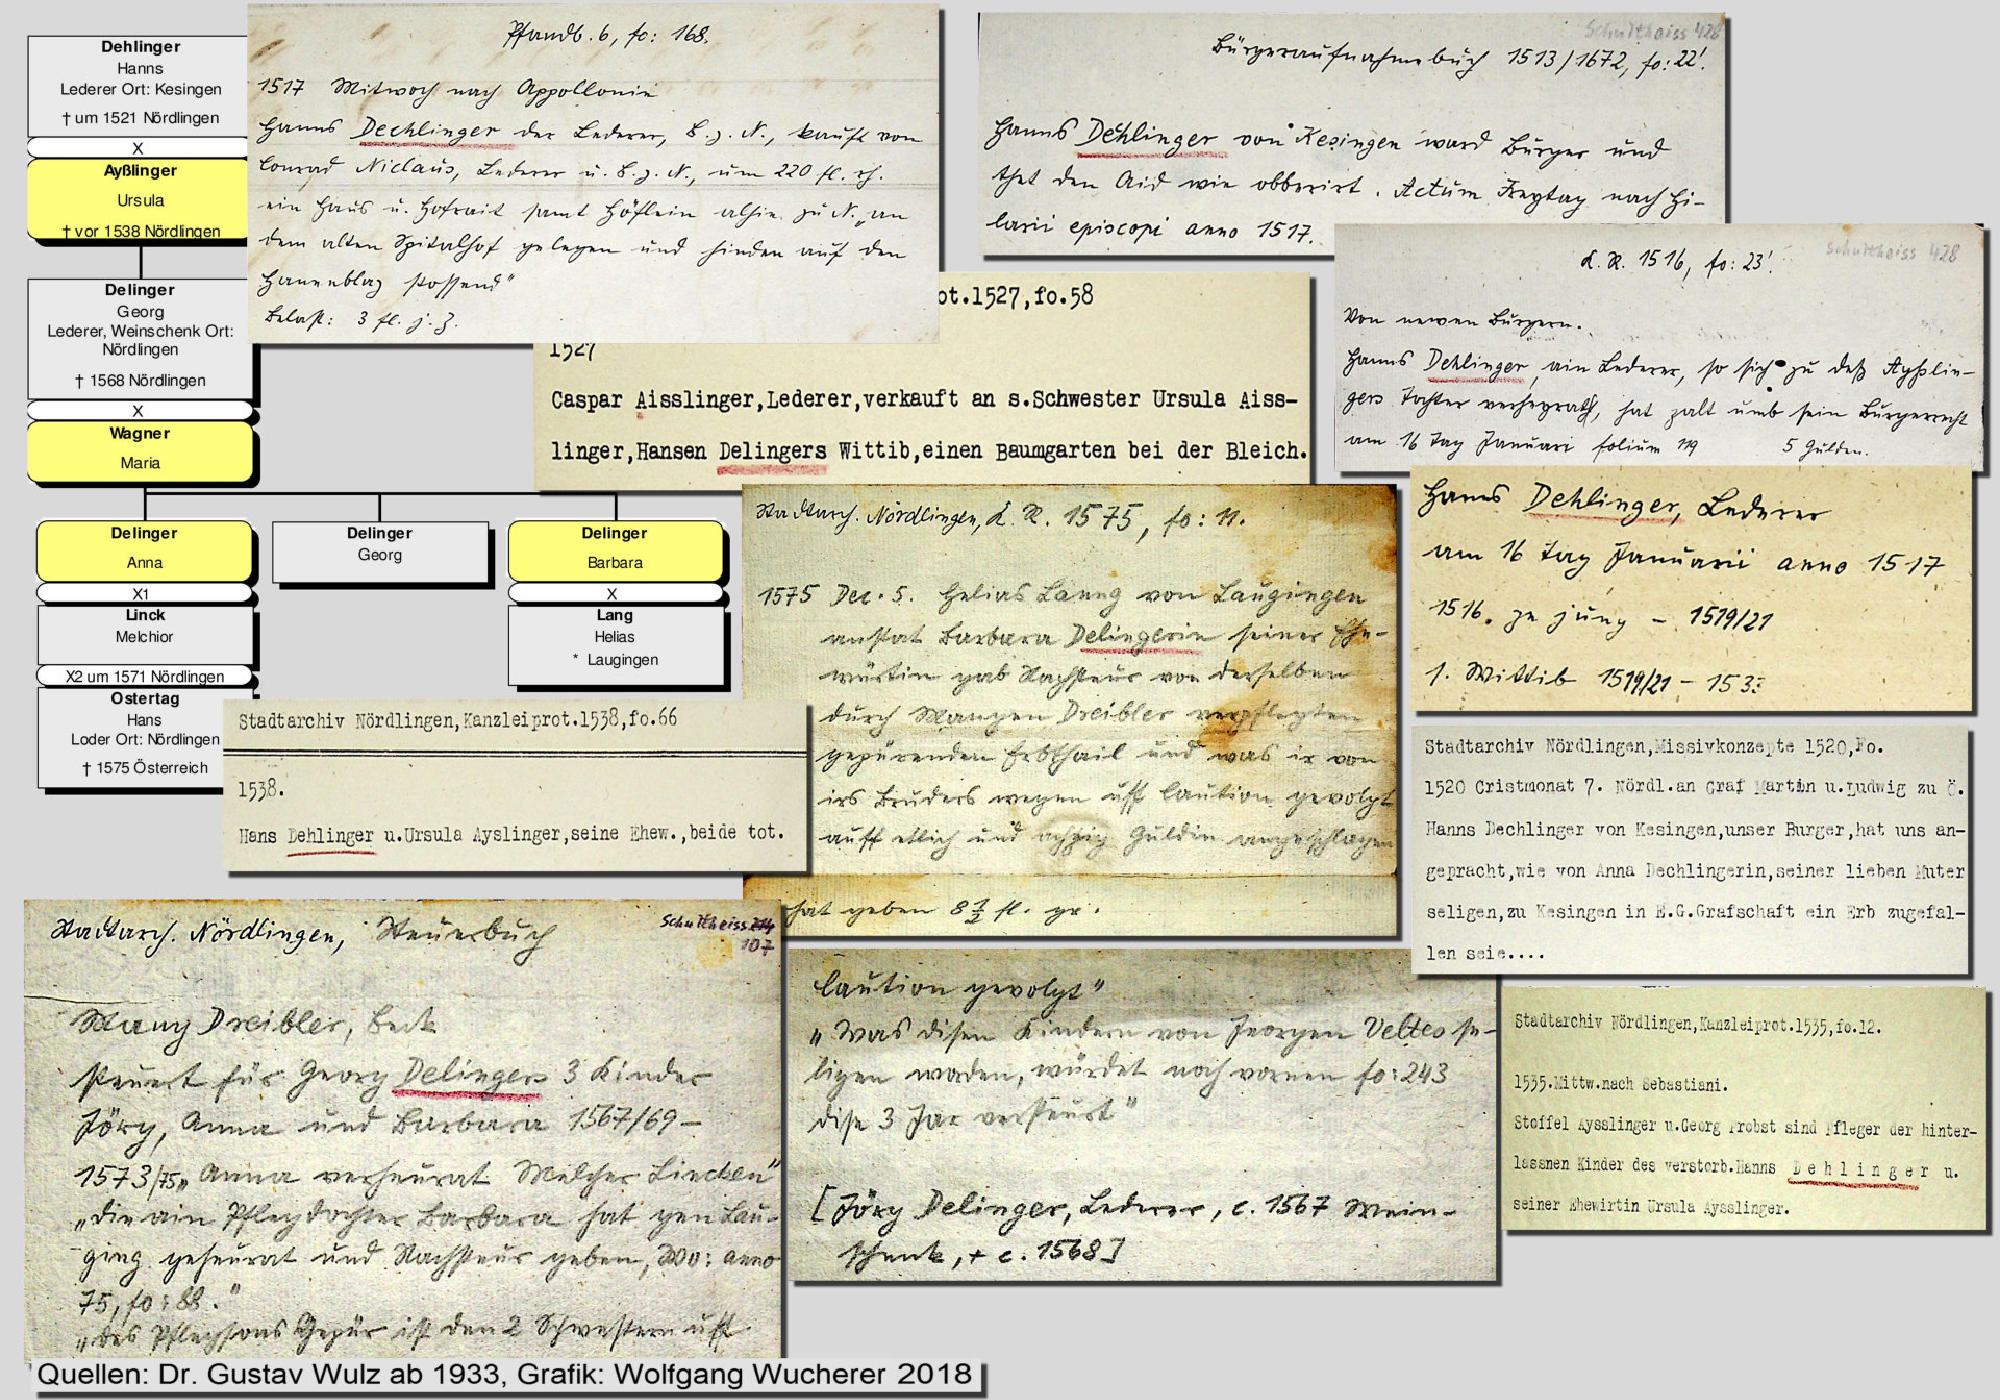 Dehlinger
Hanns
Lederer Ort: Kesingen
† um 1521 Nördlingen
X
Ayßlinger
Ursula
† vor 1538 Nördlingen
Delinger
Georg
Lederer, Weinschenk Ort:
Nördlingen
† 1568 Nördlingen
X
Wagner
Maria
Delinger
Anna
X1
Linck
Melchior
X2 um 1571 Nördlingen
Ostertag
Hans
Loder Ort: Nördlingen
† 1575 Österreich
Delinger
Georg
Delinger
Barbara
X
Lang
Helias
* Laugingen
Pfandb. 6, fo: 168.
1517 Mitwoch nach Appollonie
Hanns Dechlinger der Lederer, B. z. N., kauft von
Conrad Niclaus, Lederer u. B. z. N., um 220 fl. rh.
ein Haus u. Hofrait samt Höflein alhie zu N. „an
dem alten Spitalhof gelegen und hinden auf den
Hanenblaz stossend“
Belast: 3 fl. j. Z.
Schultheiss 428
Bürgeraufnahmebuch 1513/1672, fo: 22'.
Hanns Dehlinger von Kesingen ward Burger und
thet den Aid wie obberirt. Actum Freytag nach Hi-
larii episcopi anno 1517.
Schultheiss 428
L. R. 1516, fo: 23'.
Von newen Burgern.
Hanns Dehlinger, ain Lederer, so sich zu deß Ayßlin-
gers Tochter verheyrath, hat zalt umb sein Burgerrecht
am 16 Tag Januari folium 119 5 Gulden.
ot.1527,fo.58
1527
Caspar Aisslinger,Lederer,verkauft an s.Schwester Ursula Aiss-
linger,Hansen Delingers Wittib,einen Baumgarten bei der Bleich.
Hanns Dehlinger, Lederer
am 16 Tag Januarii anno 1517
1516. ze jung – 1519/21
1. Wittib 1519/21 – 153
Stadtarch. Nördlingen, L. R. 1575, fo: 11.
1575 Dec. 5. Helias Lanng von Laugingen
anstat Barbara Delingerin seiner Ehe-
würtin gab Nachsteur von derselben
durch Mangen Dreibler verpflegten
gepürenden Erbthail und was ir von
irs Bruders wegen uff Caution gevolgt
auff etlich und achzig Guldin angeschlagen
hat geben 8 1/2 fl. gr.
Stadtarchiv Nördlingen,Kanzleiprot.1538,fo.66
1538.
Hans Dehlinger u.Ursula Ayslinger,seine Ehew.,beide tot.
Stadtarchiv Nördlingen,Missivkonzepte 1520,Fo.
1520 Cristmonat 7. Nördl.an Graf Martin u.Ludwig zu Ö.
Hanns Dechlinger von Kesingen,unser Burger,hat uns an-
gepracht,wie von Anna Dechlingerin,seiner lieben Muter
seligen,zu Kesingen in E.G.Grafschaft ein Erb zugefal-
len seie....
Stadtarch. Nördlingen, Steuerbuch
Schultheiss
107
Mang Dreibler, Beck
steuert für Georg Delingers 3 Kinder
Jörg, Anna und Barbara 1567/69 –
1573/75 „Anna verheurat Melcher Lincken“
„die ain Pflegdochter Barbara hat gen Lau-
ging geheurat und Nachsteur geben, Wo: anno
75, fo: 88.“
„des Pflegsons Gepür ist den 2 Schwestern uff
Caution gevolgt“
„Was disen Kindern von Jeorgen Veltes se-
ligen worden, würdet noch vornen fo: 243
dise 3 Jar versteurt“
[Jörg Delinger, Lederer, c. 1567 Wein-
schenk, + c. 1568]
Stadtarchiv Nördlingen,Kanzleiprot.1535,fo.12.
1535.Mittw.nach Sebastiani.
Stoffel Aysslinger u.Georg Probst sind Pfleger der hinter-
lassnen Kinder des verstorb.Hanns Dehlinger u.
seiner Ehewirtin Ursula Aysslinger.
Quellen: Dr. Gustav Wulz ab 1933, Grafik: Wolfgang Wucherer 2018